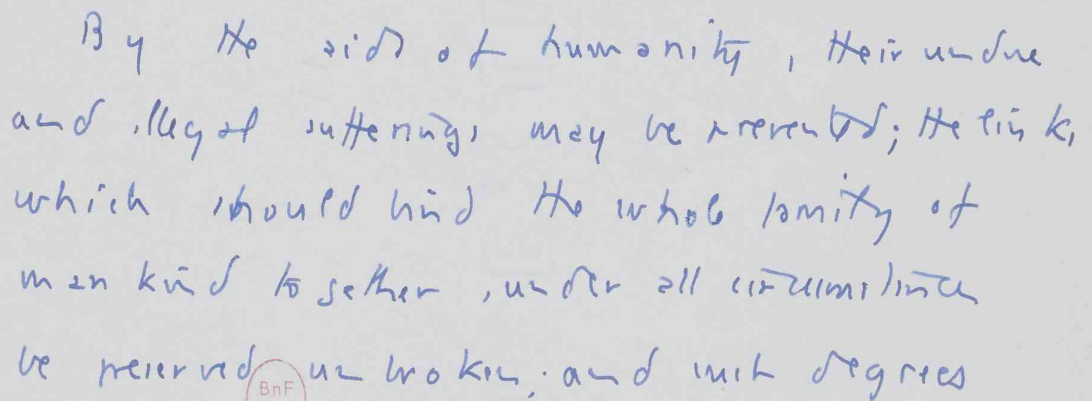 By the aid of humanity, their undue
and illegal sufferings may be prevented; the link,
which should bind the whole family of
mankind together, under all circumstances
be preserved unbroken; and such degrees
BnF